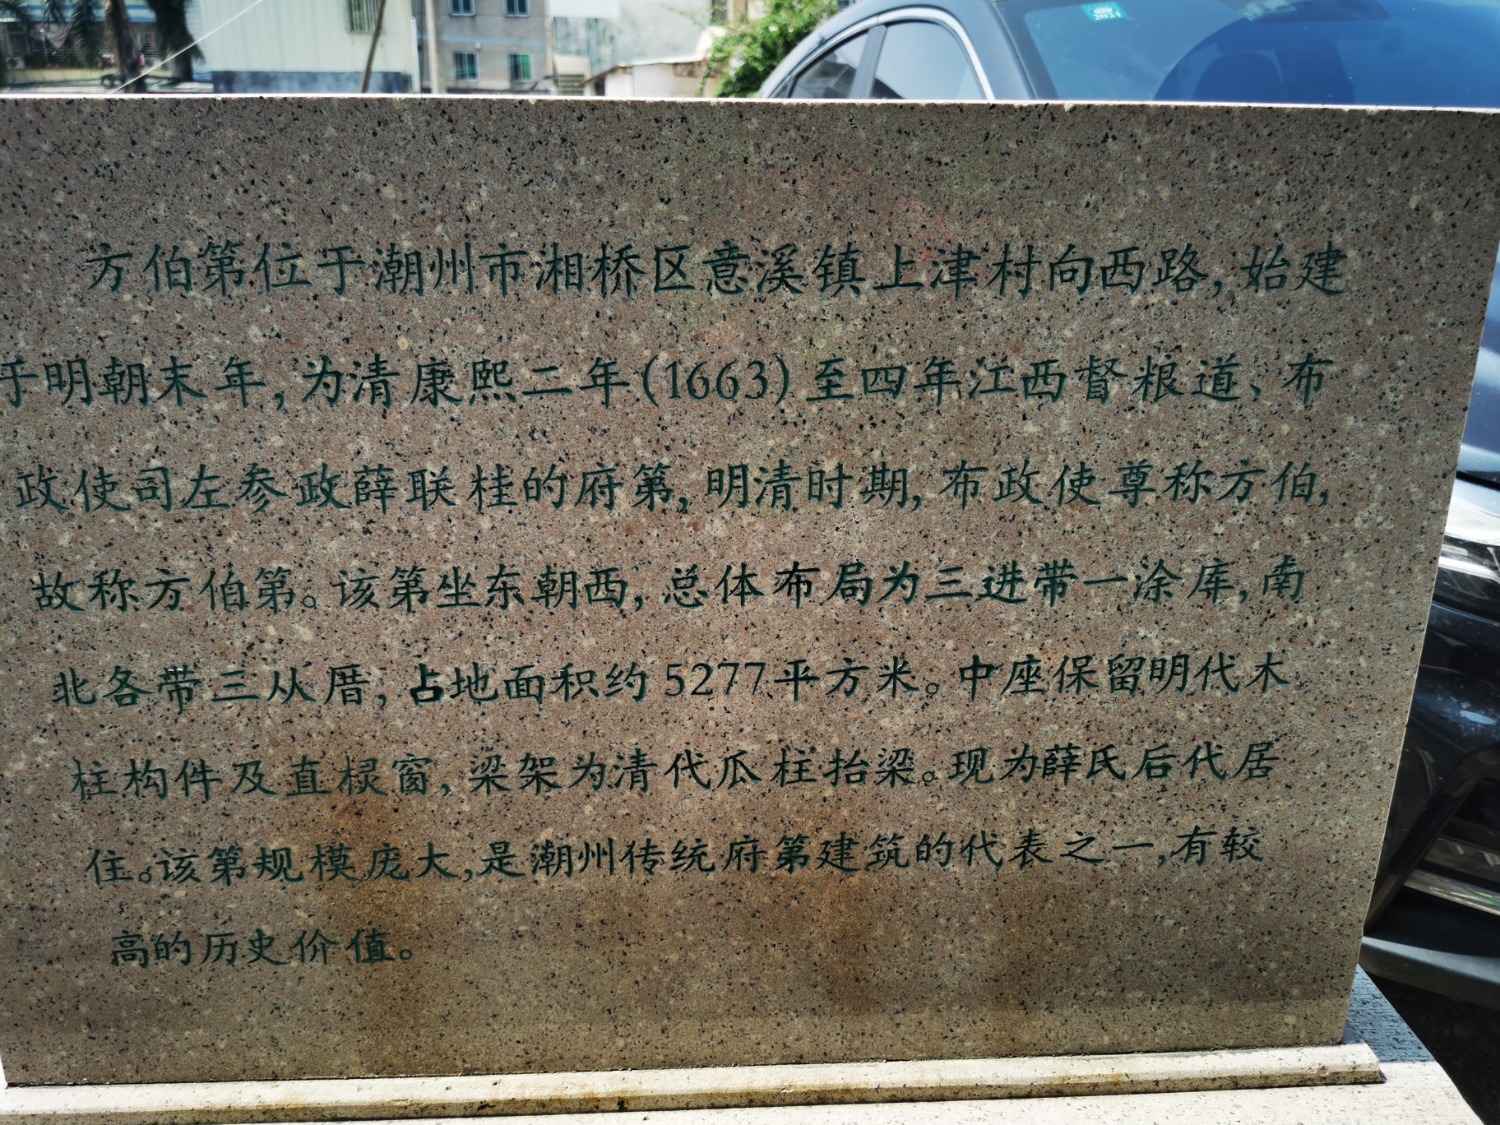 2021
方伯第位于潮州市湘桥区意溪镇上津村向西路,始建
于明朝末年,为清康熙二年(1663)至四年江西督粮道、布
政使司左参政薛联桂的府第,明清时期,布政使尊称方伯,
故称方伯第。该第坐东朝西,总体布局为三进带一涂库,南
北各带三从厝,占地面积约5277平方米。中座保留明代木
柱构件及直棂窗,梁架为清代瓜柱抬梁。现为薛氏后代居
住。该第规模庞大,是潮州传统府第建筑的代表之一,有较
高的历史价值。